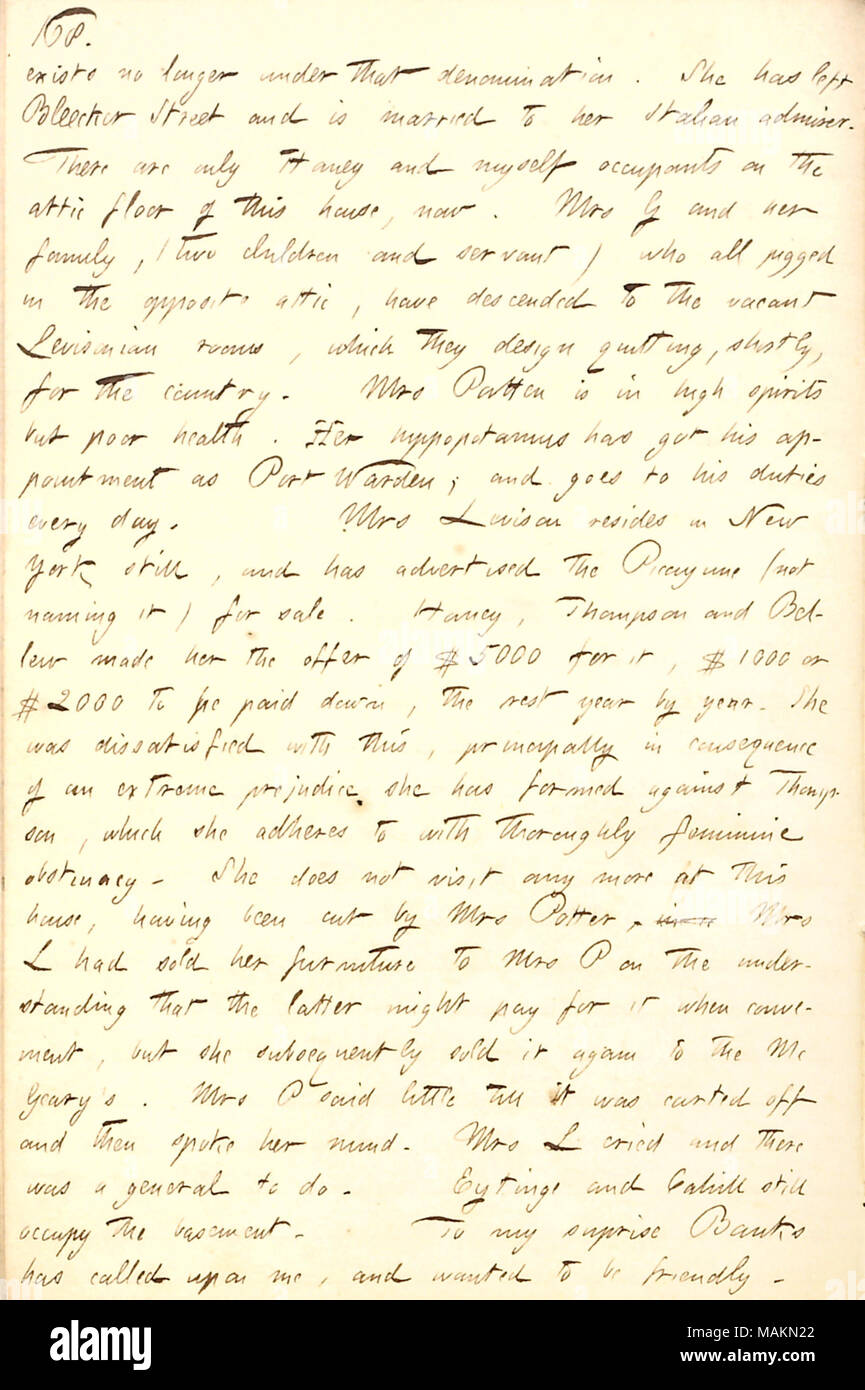 168.
exists no longer under that denomination. She has left
Bleecker Street and is married to her Italian admirer.
There are only Haney and myself occupants on the
attic floor of this house, now. Mrs G and her
family, (two children and servant) who all pigged
in the opposite attic, have descended to the vacant
Levisonian rooms, which they design quitting, shortly,
for the country. Mrs Patten is in high spirits
but poor health. Her hyppopotamus has got his ap-
pointment as Port Warden; and goes to his duties
every day. Mrs Levison resides in New
York still, and has advertised the Picayune (not
naming it) for sale. Haney, Thompson and Bel-
lew made her the offer of $5000 for it, $1000 or
$2000 to be paid down, the rest year by year. She
was dissatisfied with this, principally in consequence
of an extreme prejudice she has formed against Thomp-
son, which she adheres to with thoroughly feminine
obstinacy. She does not visit any more at this
house, having been cut by Mrs Potter, Mrs
L had sold her furniture to Mrs P on the under-
standing that the latter might pay for it when conve-
nient, but she subsequently sold it again to the Mc
Geary's. Mrs P said little till it was carted off
and then spoke her mind. Mrs L cried and there
was a general to do. Eytinge and Cahill still
occupy the basement. To my suprise Banks
has called upon me, and wanted to be friendly.
alamy
Image ID: MAKN22
www.alamy.com